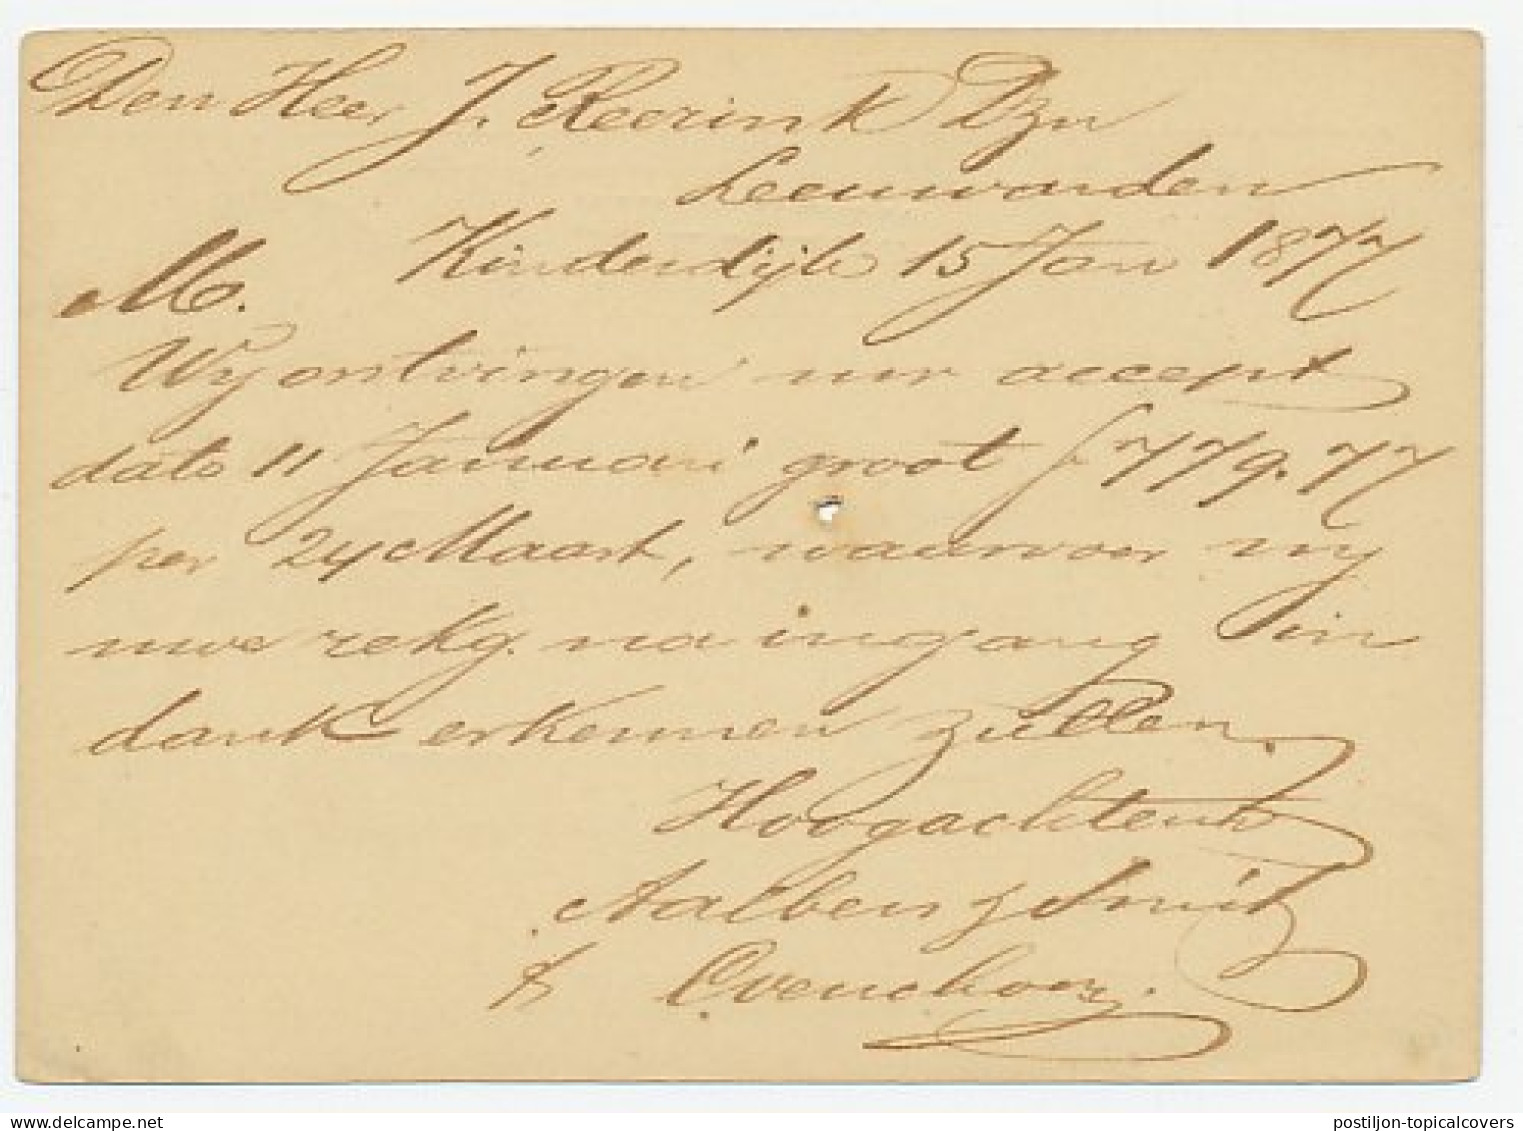 Den Heer J. Reerink Dzn
Leeuwarden
Kinderdijk 15 Jan 1877
M.
Wij ontvingen uw accept
dato 11 Januari groot f 779.77
per 24 Maart, waarvoor wij
uwe rekg. na ingang in
dank erkennen zullen.
Hoogachtend
Aalbers J Smit
&
postiljon-topicalcovers